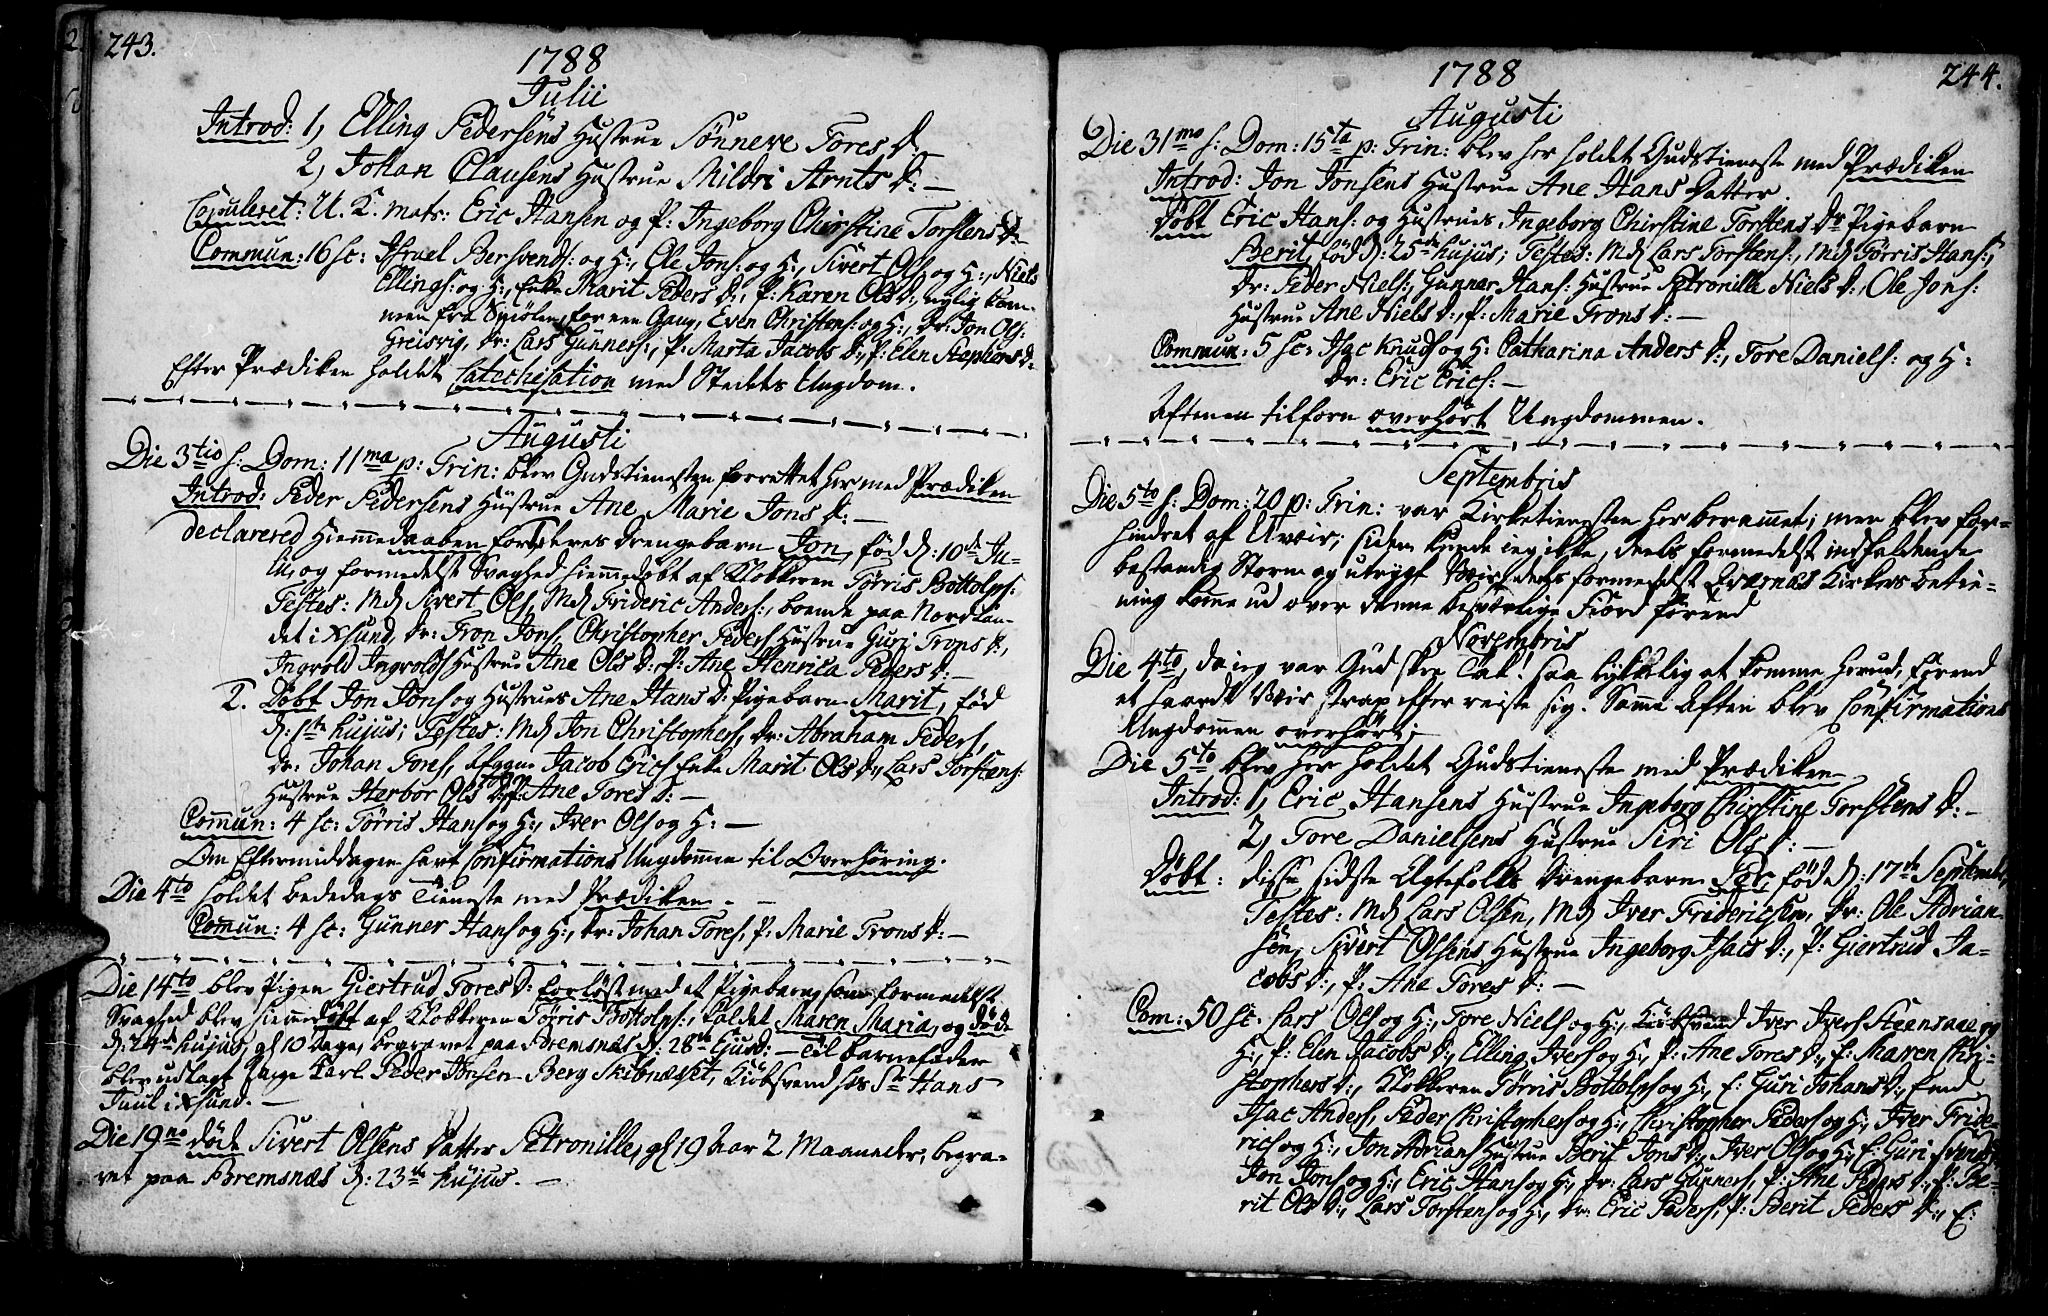 243.
1788
Julii
Introd: 1, Elling Pedersens Hustrue Sönneve Tores D.
2, Johan Clausens Hustrue Mildri Arnts D: —
Copuleret: U. K. mats: Eric Hansen og P: Ingeborg Chirstine Torstens D:
Commun: 16 sc: Israel Bersvends: og H:, Ole Jons: og H:, Sivert Ols og H:, Niels
Ellings: og H:, Enke Marit Peders D:, P: Karen Ols D:, nylig kom-
men fra Smölen, for een Gang, Even Christens: og H:, Dr: Jon Ols:
Greisvig, Dr: Lars Gunners:, P: Marta Jacobs D:, P: Elen Stephens D:
Efter Prædiken holdet Catechisation med Stedets Ungdom.
Augusti
Die 3tio s: Dom: 11ma p: Trin: blev Gudstienesten forrettet her med Prædiken
Introd: Peder Pedersens Hustrue Ane Marie Jons D: —
declarered Hiemmedaaben for deres Drengebarn Jon, föd d: 10de Ju-
lii, og formedelst Svaghed hiemmedöbt af Klokkeren Törris Bottolphs:
Testes: Md Sivert Ols, Md Frideric Anders:, boende paa Nordlan-
det i Xsund, Dr: Tron Jons, Christopher Peders Hustrue Guri Trons D:,
Ingvold Ingvolds Hustrue Ane Ols D: P: Ane Henrica Peders D: —
2. Döbt Jon Jons og Hustrues Ane Hans D: Pigebarn Marit, föd
d: 1ste hujus; Testes: Md Jon Christophers, Dr: Abraham Peders,
Dr: Johan Tores, Afgagne Jacob Erics Enke Marit Ols D:, Lars Torstens:
Hustrue Herbor Ols D: P: Ane Tores D: —
Commun: 4 sc: Törris Hans og H:, Iver Ols og H: —
Om Eftermiddagen havt Confirmations Ungdommen til Overhöring.
Die 4to holdet Bededags Tieneste med Prædiken. —
Commun: 4 sc: Gunner Hans og H:, Dr: Johan Tores, P: Marie Trons D: —
Die 14to blev Pigen Giertrud Tores D: forlöst med et Pigebarn, som formedelst
Svaghed blev hiemmedöbt af Klokkeren Törris Bottolphs:, kaldet Maren Maria, og döde
d: 24de hujus, gl 10 Dage, begravet paa Bremsnæs d: 28de Ejusd: — Til Barnefader
blev udlagt unge Karl Peder Jonsen Berg Skibnæset, Kiöbsvend hos Sr Hans
Juul i Xsund. —
Die 19no döde Sivert Olsens Datter Petronille, gl 19 Aar 2 Maaneder, begra-
vet paa Bremsnæs d: 23de hujus. —
1788
244.
Augusti
Die 31mo s: Dom: 15ta p: Trin: blev her holdet Gudstieneste med Prædiken
Introd: Jon Jonsens Hustrue Ane Hans Datter.
Döbt Eric Hans: og Hustrues Ingeborg Chirstine Torstens Dr Pigebarn
Berit, föd d: 25de hujus; Testes: Md Lars Torstens:, Md Törris Hans:,
Dr: Peder Niels:, Gunner Hans: Hustrue Petronille Niels D:, Ole Jons:
Hustrue Ane Niels D:, P: Marie Trons D: —
Commun: 5 sc: Isac Knuds og H: Catharina Anders D:, Tore Daniels: og H:
Dr: Eric Erics: —
Aftenen tilforn overhört Ungdommen.
Septembris
Die 5to s: Dom: 20 p: Trin: var Kirketienesten her berammet; men blev for-
hindret af Uveir; siden kunde ieg ikke, deels formedelst indfaldende
bestandig Storm og utrygt Veir, deels formedelst Qvernæs Kirkes betie-
ning komme ud over denne besværlige Fiord förend
Novembris
Die 4to, da ieg var Gud skee Tak! saa lykkelig at komme herud, förend
et haardt Veir strax efter reiste sig. Samme Aften blev Confirmations
Ungdommen overhört;
Die 5to blev her holdet Gudstieneste med Prædiken
Introd: 1, Eric Hansens Hustrue Ingeborg Chirstine Torstens D: —
2, Tore Danielsens Hustrue Siri Ols D: —
Döbt: disse sidste Ægtefolks Drengebarn Per, föd d: 17de Septembr:,
Testes: Md Lars Olsen, Md Iver Fridericksen, Dr: Ole Adrian-
sen, Sivert Olsens Hustrue Ingeborg Isacs D:, P: Giertrud Ja-
cobs D:, P: Ane Tores D: —
Com: 50 sc: Lars Ols og H:, Tore Niels og H:, Kiöbsvend Iver Ivers Steensaae og
H:, P: Elen Jacobs D:, Elling Ivers og H:, P: Ane Tores D:, P: Maren Chri-
stophers D:, Klokkeren Törris Bottolphs og H:, E: Guri Johans D:, Emd
Isac Anders, Peder Christophers og H:, Christopher Peders og H:, Iver Fride-
rics og H:, Jon Adrians Hustrue Berit Jons D:, Iver Ols og H:, E: Guri
Jon Jons og H:, Eric Hans og H:, Dr: Lars Gunners, P: Ane Peders D:, P: Be-
rit Ols D:, Lars Torstens og H:, Dr: Eric Peders, P: Berit Peders D:, E: